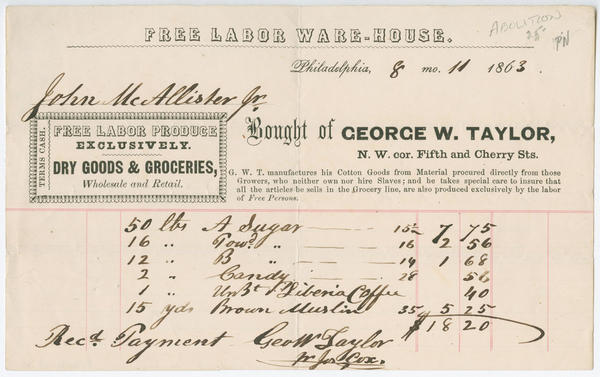 FREE LABOR WARE-HOUSE.
ABOLITION
25-
PN
Philadelphia, 8 mo. 11 1863.
John McAllister Jr.
TERMS CASH.
FREE LABOR PRODUCE
EXCLUSIVELY.
DRY GOODS & GROCERIES,
Wholesale and Retail.
Bought of GEORGE W. TAYLOR,
N. W. cor. Fifth and Cherry Sts.
G. W. T. manufactures his Cotton Goods from Material procured directly from those
Growers, who neither own nor hire Slaves; and he takes special care to insure that
all the articles he sells in the Grocery line, are also produced exclusively by the labor
of Free Persons.
50 lbs A Sugar 15½ 7 75
16 " Powd " 16 2 56
12 " B " 14 1 68
2 " Candy 28 56
1 " Liberia Coffee 40
15 yds Brown Muslin 35 5 25
$18 20
Recd. Payment Geo W Taylor
pr Jos Cox.